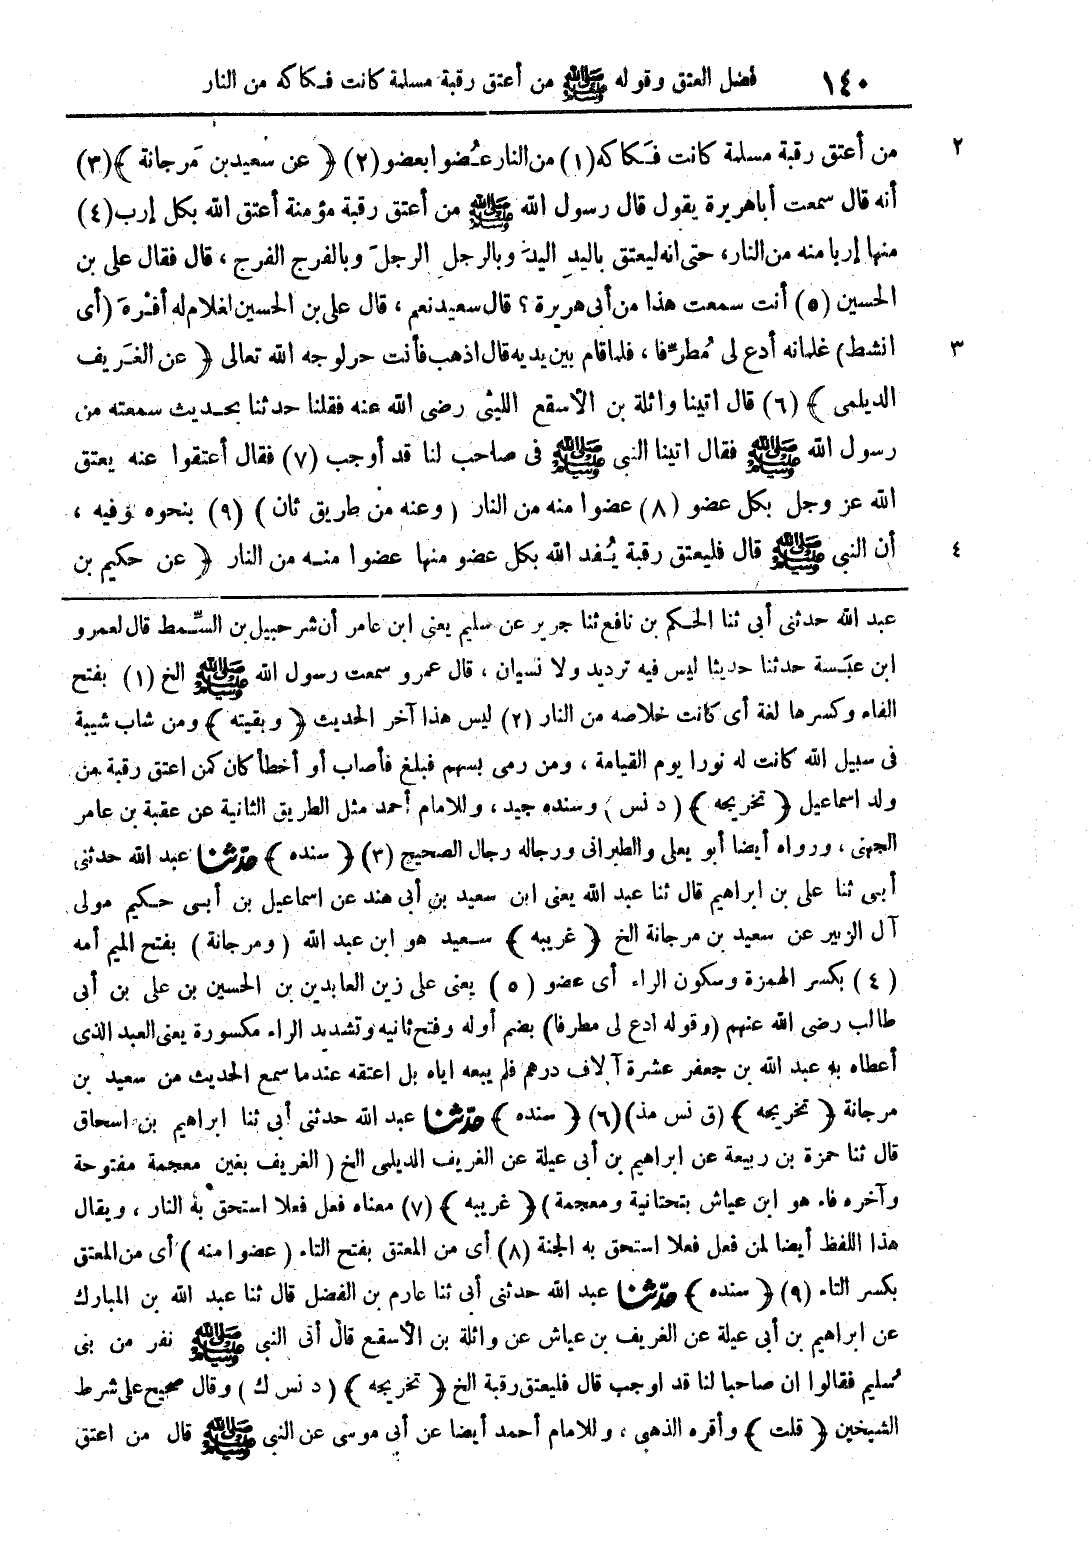 ١٤٠ فضل العتق وقوله ﷺ من أعتق رقبة مسلمة كانت فكاكه من النار
٢ من أعتق رقبة مسلمة كانت فَكاكه (١) من النار عُضوا بعضو (٢) ﴿ عن سعيد بن مَرجانة ﴾ (٣)
أنه قال سمعت أبا هريرة يقول قال رسول الله ﷺ من أعتق رقبة مؤمنة أعتق الله بكل إرب (٤)
منها إربا منه من النار، حتى انه ليعتق باليدِ اليدَ وبالرجل الرجلَ وبالفرج الفرج ، قال فقال على بن
الحسين (٥) أنت سمعت هذا من أبى هريرة ؟ قال سعيد نعم ، قال على بن الحسين لغلام له أفْرَهَ (أى
٣ انشط) غلمانه أدع لى مُطرِّفا ، فلما قام بين يديه قال اذهب فأنت حر لوجه الله تعالى ﴿ عن الغَريف
الديلمى ﴾ (٦) قال اتينا واثلة بن الأسقع الليثى رضى الله عنه فقلنا حدثنا بحديث سمعته من
رسول الله ﷺ فقال اتينا النبى ﷺ فى صاحب لنا قد أوجب (٧) فقال أعتقوا عنه يعتق
الله عز وجل بكل عضو (٨) عضوا منه من النار (وعنه من طريق ثان) (٩) بنحوه وفيه ،
٤ أن النبى ﷺ قال فليعتق رقبة يُفد الله بكل عضو منها عضوا منه من النار ﴿ عن حكيم بن
عبد الله حدثنى أبى ثنا الحكم بن نافع ثنا جرير عن سليم يعنى ابن عامر أن شرحبيل بن السِّمط قال لعمرو
ابن عبَسة حدثنا حديثا ليس فيه ترديد ولا نسيان ، قال عمرو سمعت رسول الله ﷺ الخ (١) بفتح
الفاء وكسرها لغة أى كانت خلاصه من النار (٢) ليس هذا آخر الحديث ﴿ وبقيته ﴾ ومن شاب شيبة
فى سبيل الله كانت له نورا يوم القيامة ، ومن رمى بسهم فبلغ فأصاب أو أخطأ كان كمن اعتق رقبة من
ولد اسماعيل ﴿ تخريجه ﴾ (د نس) وسنده جيد، وللامام أحمد مثل الطريق الثانية عن عقبة بن عامر
الجهنى ، ورواه أيضا أبو يعلى والطبرانى ورجاله رجال الصحيح (٣) ﴿ سنده ﴾ حدّثنا عبد الله حدثنى
أبى ثنا على بن ابراهيم قال ثنا عبد الله يعنى ابن سعيد بن أبى هند عن اسماعيل بن أبى حكيم مولى
آل الزبير عن سعيد بن مرجانة الخ ﴿ غريبه ﴾ سعيد هو ابن عبد الله (ومرجانة) بفتح الميم أمه
(٤) بكسر الهمزة وسكون الراء أى عضو (٥) يعنى على زين العابدين بن الحسين بن على بن أبى
طالب رضى الله عنهم (وقوله ادع لى مطرفا) بضم أوله وفتح ثانيه وتشديد الراء مكسورة يعنى العبد الذى
أعطاه به عبد الله بن جعفر عشرة آلاف درهم فلم يبعه اياه بل اعتقه عندما سمع الحديث من سعيد بن
مرجانة ﴿ تخريجه ﴾ (ق نس مذ) (٦) ﴿ سنده ﴾ حدّثنا عبد الله حدثنى أبى ثنا ابراهيم بن اسحاق
قال ثنا حمزة بن ربيعة عن ابراهيم بن أبى عيلة عن الغريف الديلمى الخ (الغريف بغين معجمة مفتوحة
وآخره فاء هو ابن عياش بتحتانية ومعجمة) ﴿ غريبه ﴾ (٧) معناه فعل فعلا استحق به النار ، ويقال
هذا اللفظ أيضا لمن فعل فعلا استحق به الجنة (٨) أى من المعتق بفتح التاء (عضوا منه) أى من المعتق
بكسر التاء (٩) ﴿ سنده ﴾ حدّثنا عبد الله حدثنى أبى ثنا عارم بن الفضل قال ثنا عبد الله بن المبارك
عن ابراهيم بن أبى عيلة عن الغريف بن عياش عن واثلة بن الأسقع قال أتى النبى ﷺ نفر من بنى
سُليم فقالوا ان صاحبا لنا قد اوجب قال فليعتق رقبة الخ ﴿ تخريجه ﴾ (د نس ك) وقال صحيح على شرط
الشيخين ﴿ قلت ﴾ وأقره الذهبى ، وللامام أحمد أيضا عن أبى موسى عن النبى ﷺ قال من اعتق